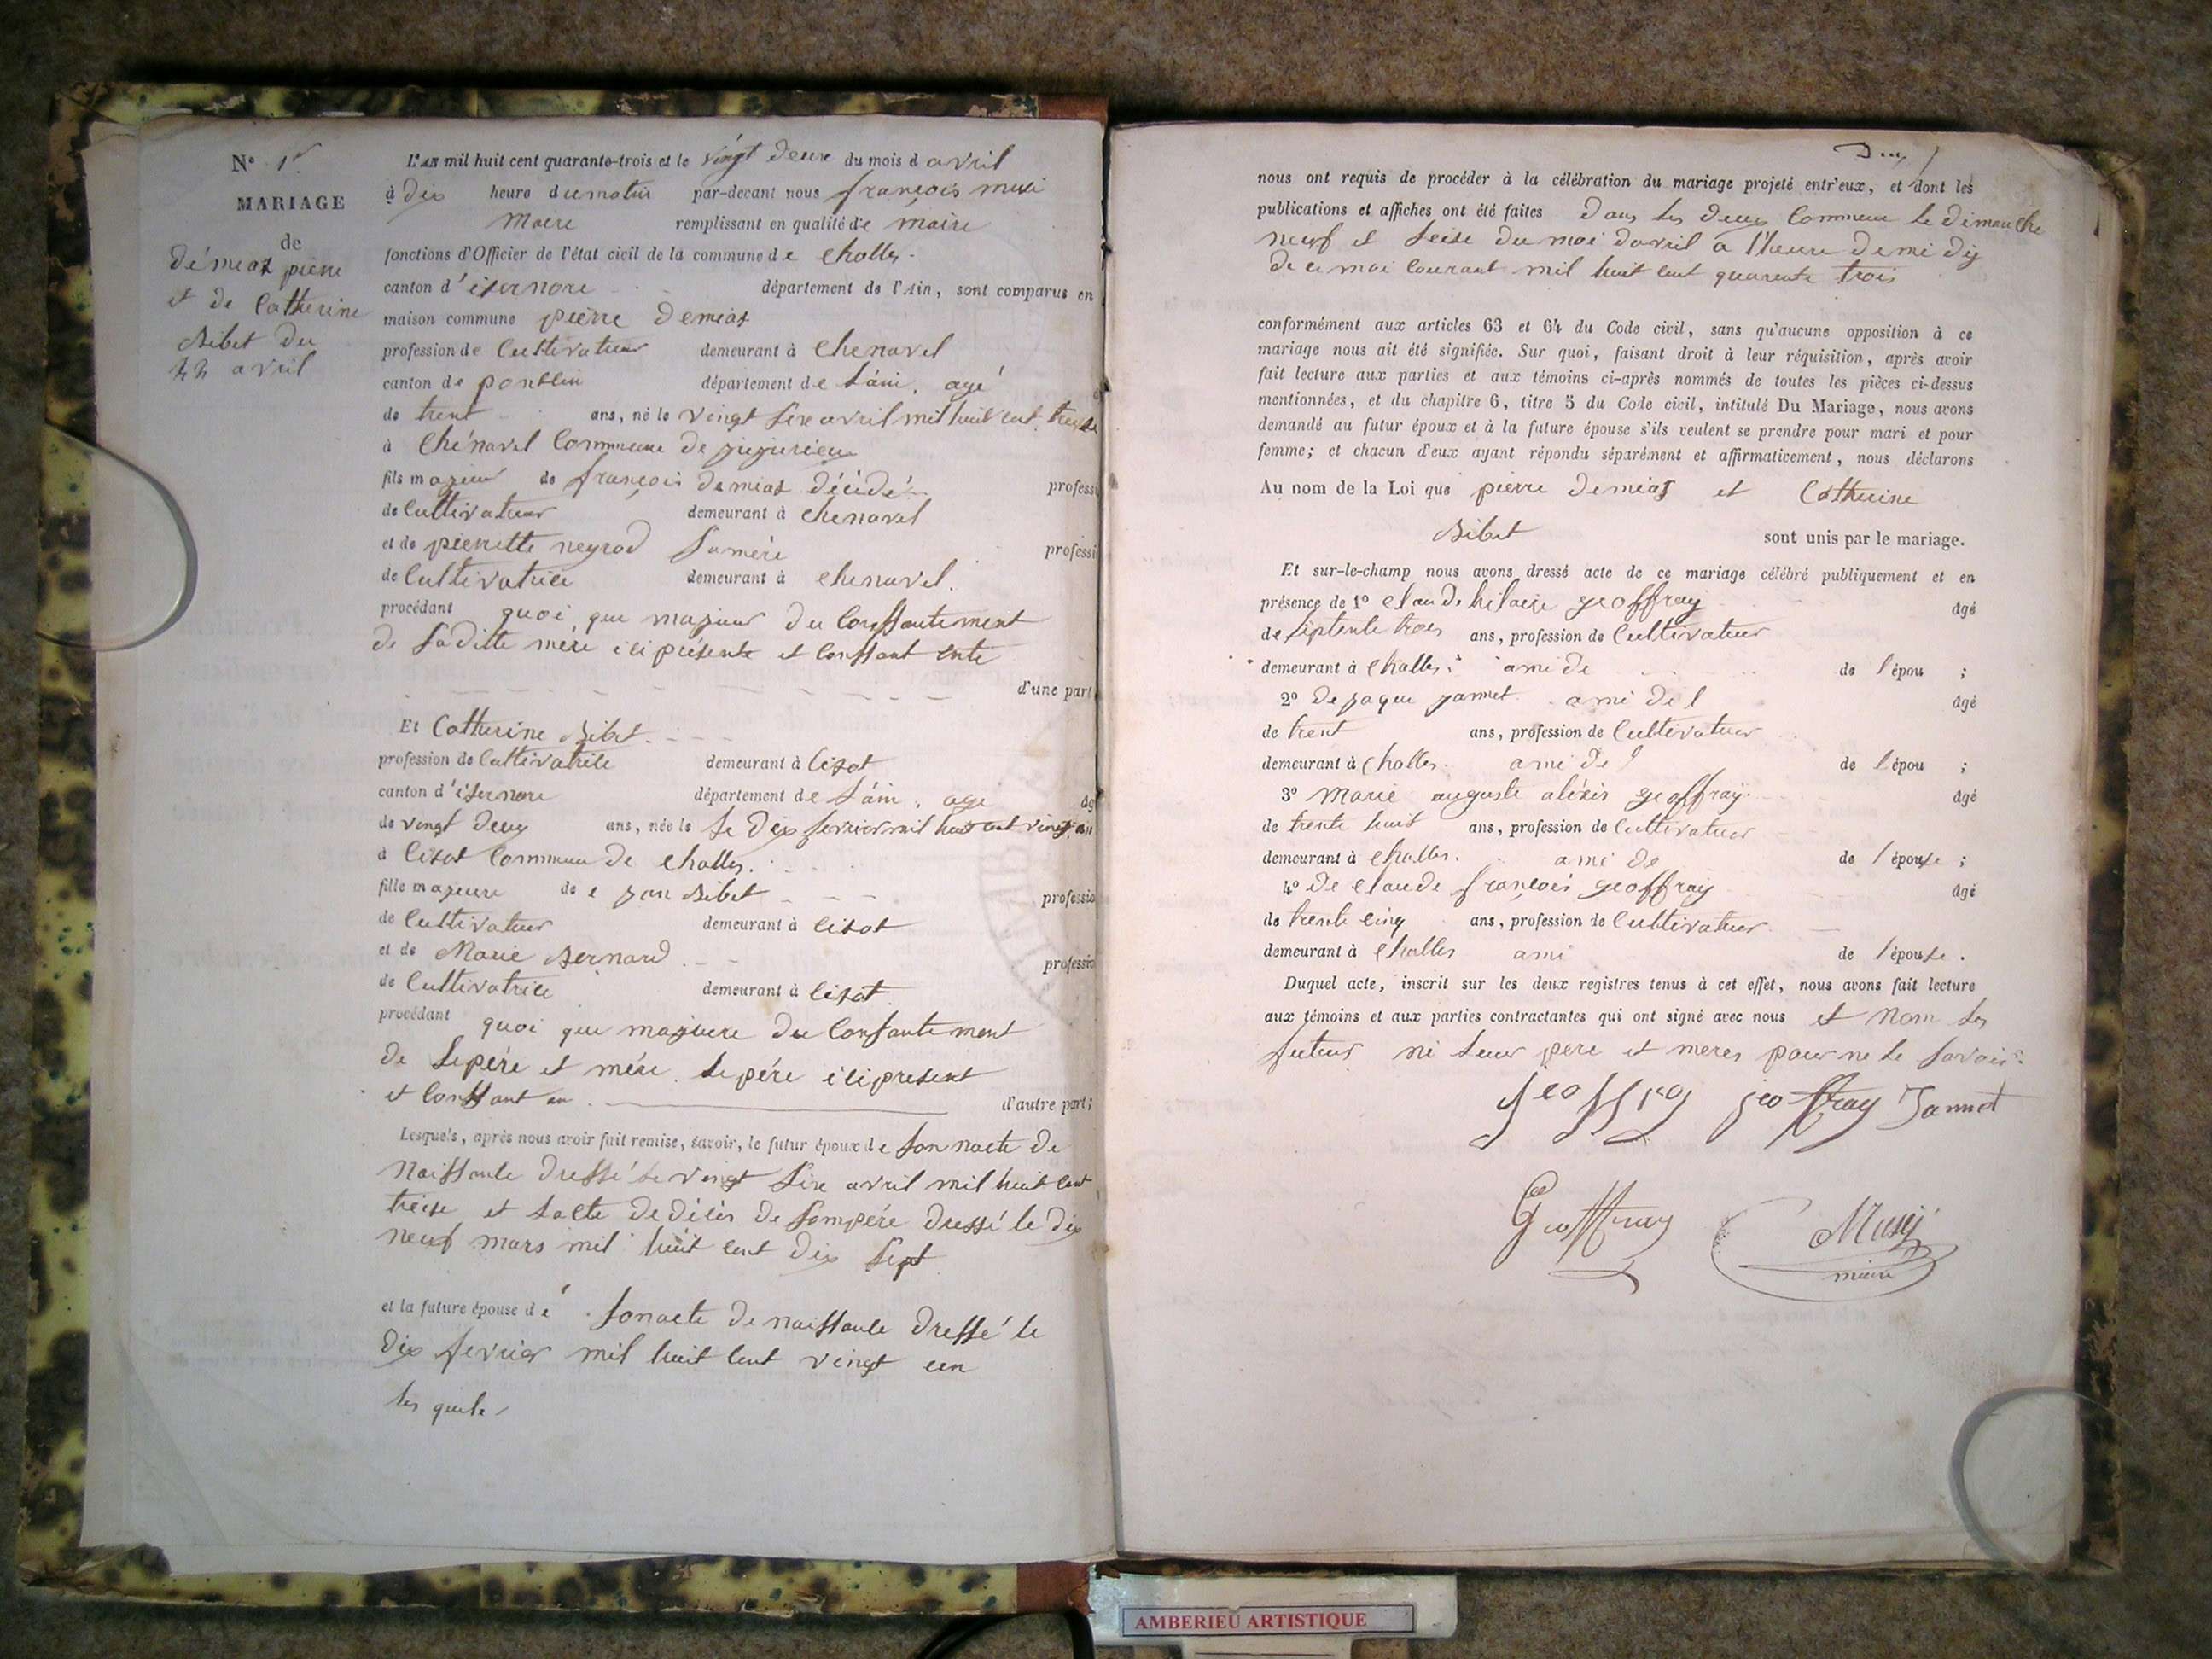 N° 1er
MARIAGE
de
démias pierre
et de Catherine
Bibet du
22 avril
L'AN mil huit cent quarante-trois et le vingt deux du mois d avril
à dix heure du matin par-devant nous françois musi
Maire remplissant en qualité de maire
fonctions d'Officier de l'état civil de la commune de Challes
canton d'isernore département de l'Ain, sont comparus en
maison commune pierre demias
profession de Cultivateur demeurant à Chenavel
canton de pontdin département de l'ain, agé
de trent ans, né le vingt sixe avril mil huit cent treise
à Chénavel Commune de jujurieux
fils majeur de françois demias décidé professi
de Cultivateur demeurant à chenavel
et de pierrette neyrod sa mère professi
de Cultivatrice demeurant à chenavel.
procédant quoi, que majeur du Conssantement
de saditte mère ici présente et Conssant ente
d'une part
Et Catherine Bibet
profession de Cultivatrice demeurant à Cisot
canton d'isernore département de l'ain, agé âg
de vingt deux ans, née le le dix fevrier mil huit cent vingt un
à Cisot Commune de Challes.
fille majeure de jean Bibet professio
de Cultivateur demeurant à Cisot
et de Marie Bernard professio
de Cultivatrice demeurant à Cisot
procédant quoi que majeure du Consantement
de se père et mère. le père ici present
et Conssant an d'autre part;
Lesquels, après nous avoir fait remise, savoir, le futur époux de son nacte de
Naissance dressé le vingt sixe avril mil huit cent
treise et lacte de décès de sompère dressé le dix
neuf mars mil huit cent dix sept
et la future épouse de sonacte de naissance dressé le
dix fevrier mil huit cent vingt un
les quels
Deux
nous ont requis de procéder à la célébration du mariage projeté entr'eux, et dont les
publications et affiches ont été faites dans les deux Commune le dimanche
neuf et seise du moi davril a l'heure de mi dij
de ce moi Courant mil huit cent quarente trois
conformément aux articles 63 et 64 du Code civil, sans qu'aucune opposition à ce
mariage nous ait été signifiée. Sur quoi, faisant droit à leur réquisition, après avoir
fait lecture aux parties et aux témoins ci-après nommés de toutes les pièces ci-dessus
mentionnées, et du chapitre 6, titre 5 du Code civil, intitulé Du Mariage, nous avons
demandé au futur époux et à la future épouse s'ils veulent se prendre pour mari et pour
femme; et chacun d'eux ayant répondu séparément et affirmativement, nous déclarons
Au nom de la Loi que pierre demias et Catherine
Bibet sont unis par le mariage.
Et sur-le-champ nous avons dressé acte de ce mariage célébré publiquement et en
présence de 1° Claude hilaire geoffray âgé
de septente trois ans, profession de Cultivateur
demeurant à Challes ami de de l'épou ;
2° de jaque jannet ami de l âgé
de trent ans, profession de Cultivateur
demeurant à Challes ami de l de l'épou ;
3° Marie auguste aléxis geoffray âgé
de trente huit ans, profession de Cultivateur
demeurant à Challes. ami de de l'épouse ;
4° de Claude françois geoffray âgé
de trente cinq ans, profession de Cultivateur
demeurant à Challes ami de l'épouse .
Duquel acte, inscrit sur les deux registres tenus à cet effet, nous avons fait lecture
aux témoins et aux parties contractantes qui ont signé avec nous et Nom les
futeur ni leur pere et meres pour ne le savoir.
geoffray geoffray Jannet
Geoffray Musy
maire
AMBERIEU ARTISTIQUE